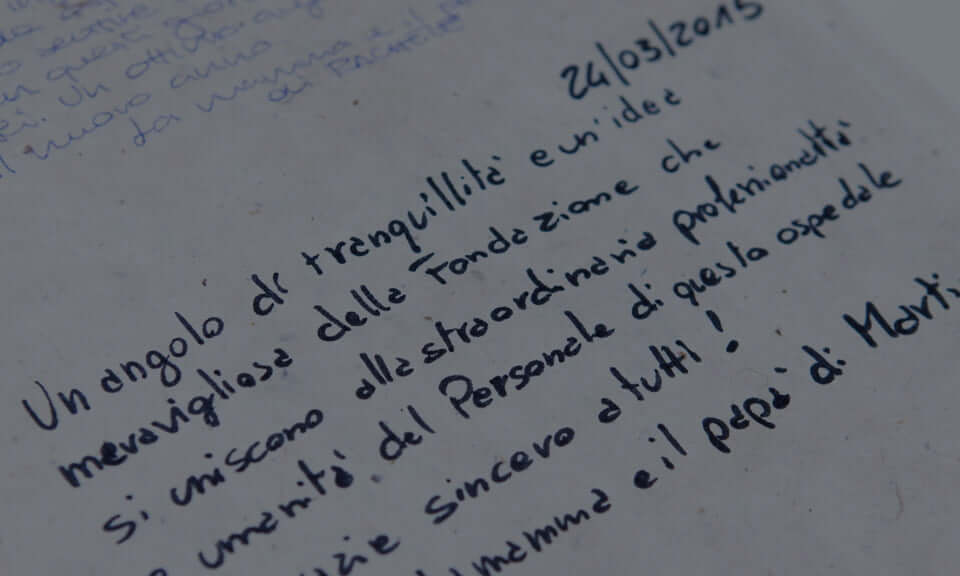 in questi giorni
Un
nuovo anno
La mamma e il
di
24/03/2015
Un angolo di tranquillità e un'idea
meravigliosa della Fondazione che
si uniscono alla straordinaria professionalità
umanità del Personale di questo ospedale
zie sincero a tutti!
mamma e il papà di Marti